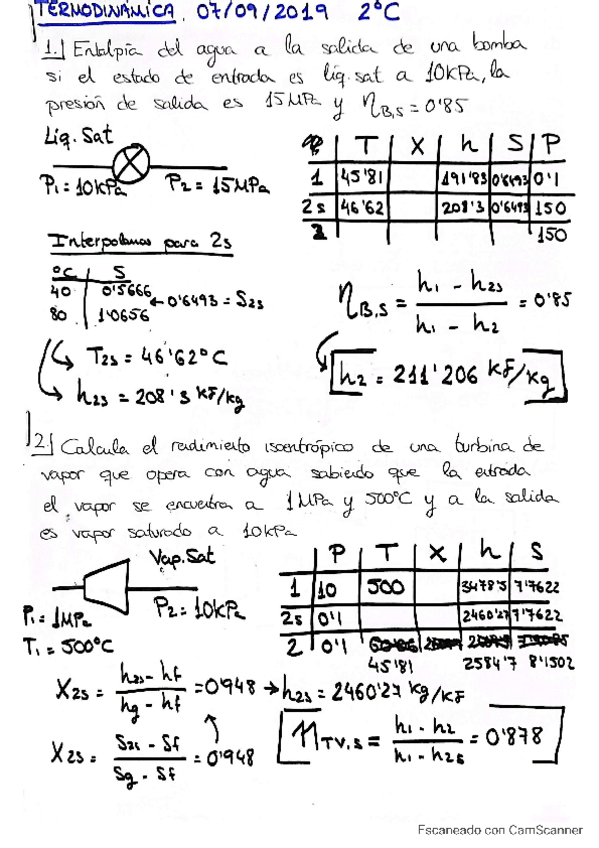 TERMODINÁMICA. 07/09/2019 2ºC
1.] Entalpía del agua a la salida de una bomba
si el estado de entrada es líq. sat a 10kPa, la
presión de salida es 15MPa y ηB,S = 0'85
Líq. Sat
P1 = 10kPa P2 = 15MPa
T X h S P
1 45'81 191'83 0'6493 0'1
2s 46'62 208'3 0'6493 150
2 150
Interpolamos para 2s
ºC S
40 0'5666
← 0'6493 = S2s
80 1'0656
T2s = 46'62ºC
h2s = 208'3 kJ/kg
ηB,S = h1 - h2s / h1 - h2 = 0'85
h2 = 211'206 kJ/kg
2.] Calcula el rendimiento isoentrópico de una turbina de
vapor que opera con agua sabiendo que la entrada
el vapor se encuentra a 1MPa y 500ºC y a la salida
es vapor saturado a 10kPa
Vap. Sat
P1 = 1MPa P2 = 10kPa
T1 = 500ºC
P T X h S
1 10 500 3478'5 7'7622
2s 0'1 2460'27 7'7622
2 0'1
45'81 2584'7 8'1502
X2s = h2s - hf / hg - hf = 0'948 → h2s = 2460'27 kg/kJ
X2s = S2s - Sf / Sg - Sf = 0'948
ηTV,S = h1 - h2 / h1 - h2s = 0'878
Escaneado con CamScanner